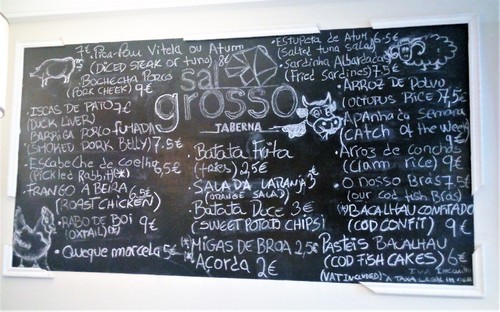 7€ Pica-Pau Vitela ou Atum
(DICED STEAK or tuna) 8€
Bochecha Porco
(PORK CHEEK) 9€
ISCAS DE PATO 7€
(DUCK LIVER)
BARRIGA PORCO FUMADA
(SMOKED PORK BELLY) 7.5€
Escabeche de coelho
(Pickled Rabbit)(*)
FRANGO A BEIRA 6.5€
(ROAST CHICKEN)
RABO DE BOI 9€
(OXTAIL)(*)
Queque morcela 5€
sal
grosso
TABERNA
Batata Frita
2,5€
SALADA LARANJA
(ORANGE SALAD)
Batata Doce 3€
(SWEET POTATO CHIPS)
(*)MIGAS DE BROA 2,5€
(*)Açorda 2€
Estupeta de Atum 6.5€
(Salted tuna salad)
Sardinha Albardada
(Fried Sardines) 7,5€
ARROZ DE POLVO
(OCTOPUS RICE) 7,5€
Apanha da Semana
(CATCH OF the Week)
9€
Arroz de conchas
(Clam rice) 9€
O nosso Brás 7,5€
(our cod fish Brás)
(*)BACALHAU CONFITADO
(COD CONFIT) 9€
Pasteis BACALHAU
(COD FISH CAKES) 6€
(VAT INCLUDED)